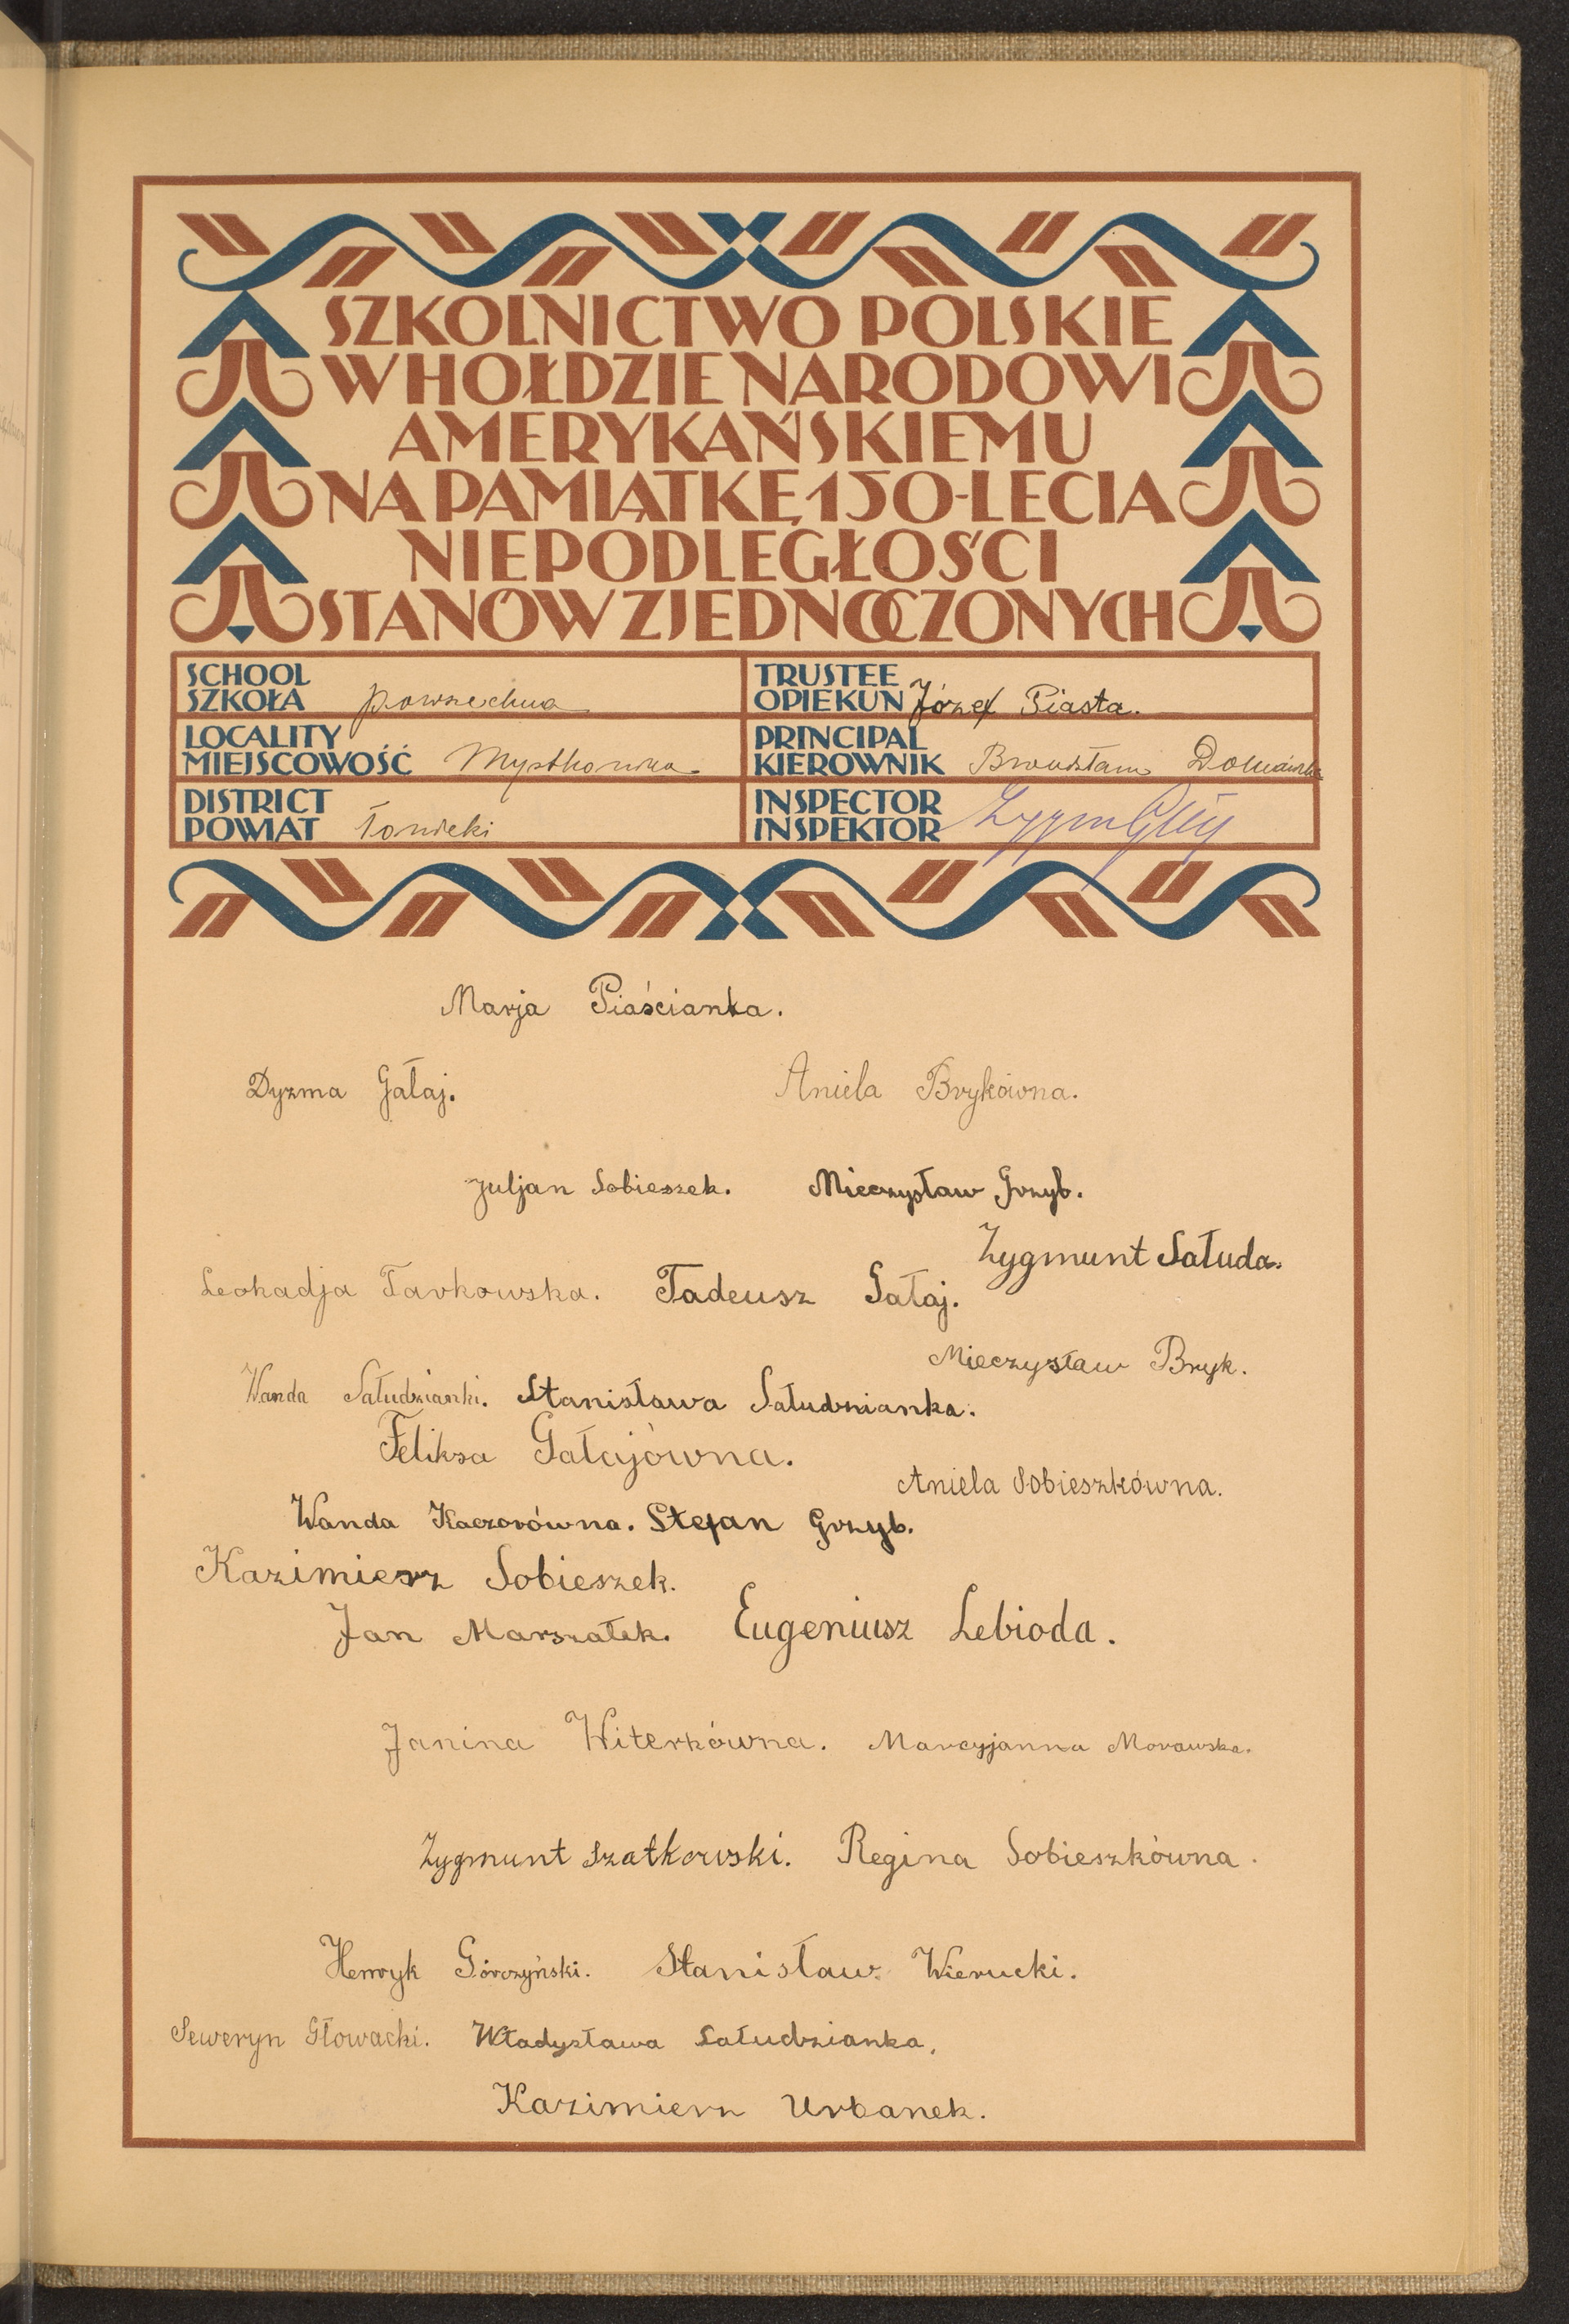 SZKOLNICTWO POLSKIE
W HOŁDZIE NARODOWI
AMERYKAŃSKIEMU
NA PAMIĄTKĘ 150-LECIA
NIEPODLEGŁOŚCI
STANÓW ZJEDNOCZONYCH
SCHOOL
SZKOŁA powszechna
TRUSTEE
OPIEKUN Józef Piasta.
LOCALITY
MIEJSCOWOŚĆ
PRINCIPAL
KIEROWNIK
DISTRICT
POWIAT łowicki
INSPECTOR
INSPEKTOR
Marja Piaścianka.
Dyzma Gałaj. Aniela Brykówna.
Juljan Sobieszek. Mieczysław Grzyb.
Zygmunt Sałuda.
Leokadja Tarkowska. Tadeusz Gałaj.
Mieczysław Bryk.
Wanda Sałudzianki. Stanisława Sałudzianka.
Feliksa Gałajówna.
Aniela Sobieszkówna.
Wanda Kaczorówna. Stefan Grzyb.
Kazimierz Sobieszek.
Jan Marszałek. Eugeniusz Lebioda.
Janina Witerkówna. Marcyjanna Morawska.
Zygmunt Szatkowski. Regina Sobieszkówna.
Henryk Górczyński. Stanisław Wierucki.
Seweryn Głowacki. Władysława Sałudzianka,
Kazimierz Urbanek.